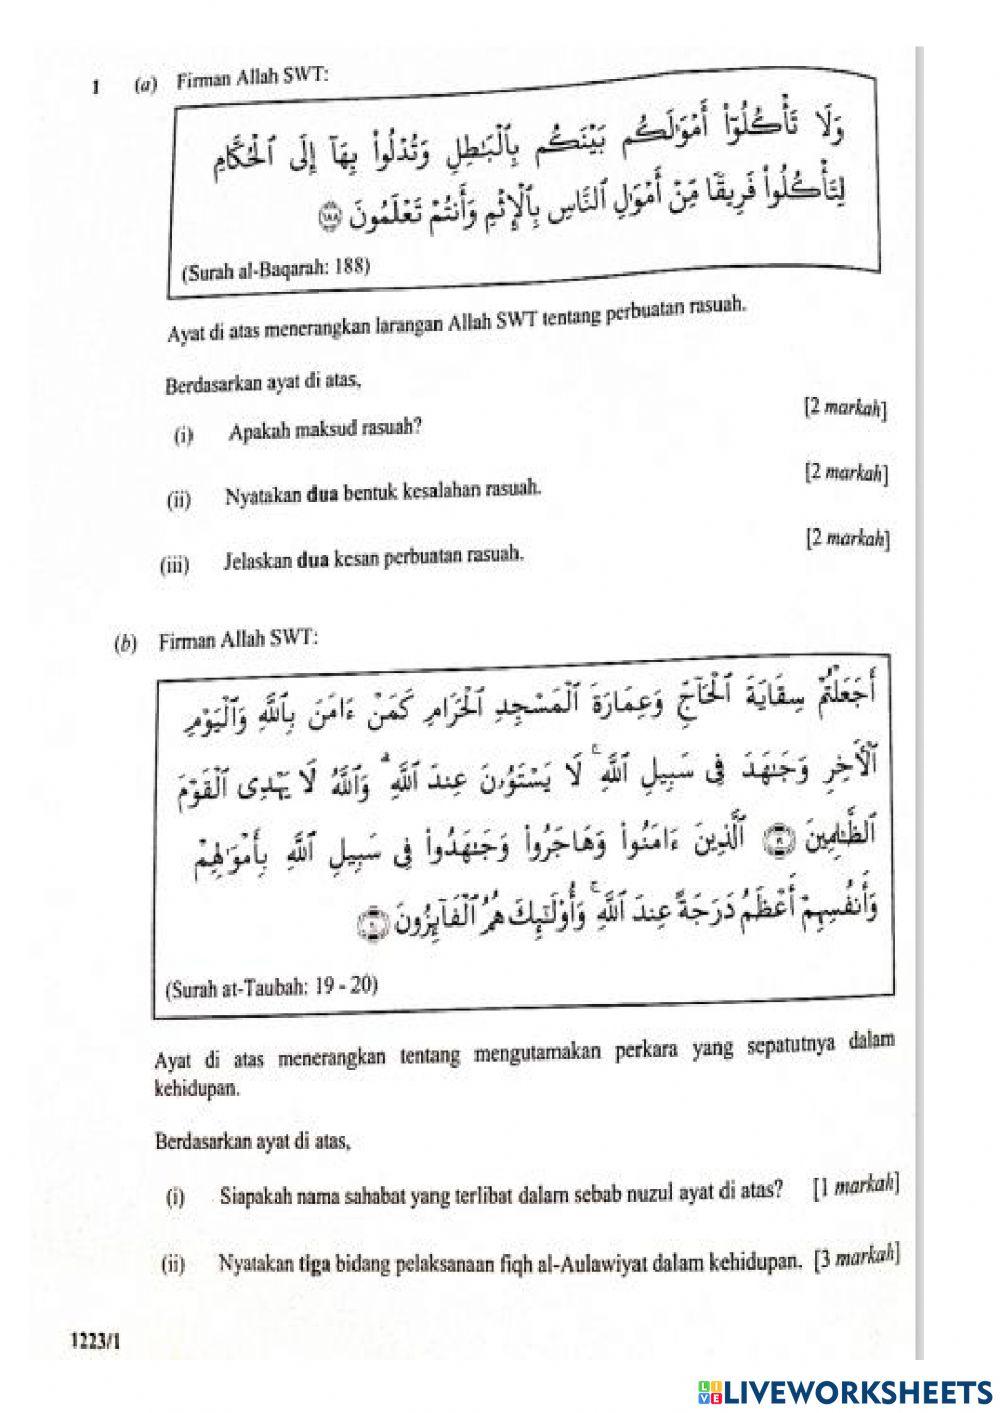 1 (a) Firman Allah SWT:
وَلَا تَأْكُلُوٓا۟ أَمْوَٰلَكُم بَيْنَكُم بِٱلْبَٰطِلِ وَتُدْلُوا۟ بِهَآ إِلَى ٱلْحُكَّامِ
لِتَأْكُلُوا۟ فَرِيقًا مِّنْ أَمْوَٰلِ ٱلنَّاسِ بِٱلْإِثْمِ وَأَنتُمْ تَعْلَمُونَ ١٨٨
(Surah al-Baqarah: 188)
Ayat di atas menerangkan larangan Allah SWT tentang perbuatan rasuah.
Berdasarkan ayat di atas,
(i) Apakah maksud rasuah? [2 markah]
(ii) Nyatakan dua bentuk kesalahan rasuah. [2 markah]
(iii) Jelaskan dua kesan perbuatan rasuah. [2 markah]
(b) Firman Allah SWT:
أَجَعَلْتُمْ سِقَايَةَ ٱلْحَآجِّ وَعِمَارَةَ ٱلْمَسْجِدِ ٱلْحَرَامِ كَمَنْ ءَامَنَ بِٱللَّهِ وَٱلْيَوْمِ
ٱلْأَخِرِ وَجَٰهَدَ فِى سَبِيلِ ٱللَّهِ ۚ لَا يَسْتَوُۥنَ عِندَ ٱللَّهِ ۗ وَٱللَّهُ لَا يَهْدِى ٱلْقَوْمَ
ٱلظَّٰلِمِينَ ١٩ ٱلَّذِينَ ءَامَنُوا۟ وَهَاجَرُوا۟ وَجَٰهَدُوا۟ فِى سَبِيلِ ٱللَّهِ بِأَمْوَٰلِهِمْ
وَأَنفُسِهِمْ أَعْظَمُ دَرَجَةً عِندَ ٱللَّهِ ۚ وَأُو۟لَٰٓئِكَ هُمُ ٱلْفَآئِزُونَ ٢٠
(Surah at-Taubah: 19 - 20)
Ayat di atas menerangkan tentang mengutamakan perkara yang sepatutnya dalam
kehidupan.
Berdasarkan ayat di atas,
(i) Siapakah nama sahabat yang terlibat dalam sebab nuzul ayat di atas? [1 markah]
(ii) Nyatakan tiga bidang pelaksanaan fiqh al-Aulawiyat dalam kehidupan. [3 markah]
1223/1
LIVE LIVEWORKSHEETS